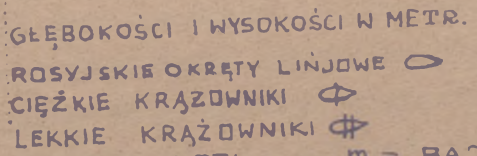 GŁĘBOKOŚCI I WYSOKOŚCI W METR.
ROSYJSKIE OKRĘTY LINJOWE
CIĘŻKIE KRĄZOWNIKI
LEKKIE KRĄŻOWNIKI